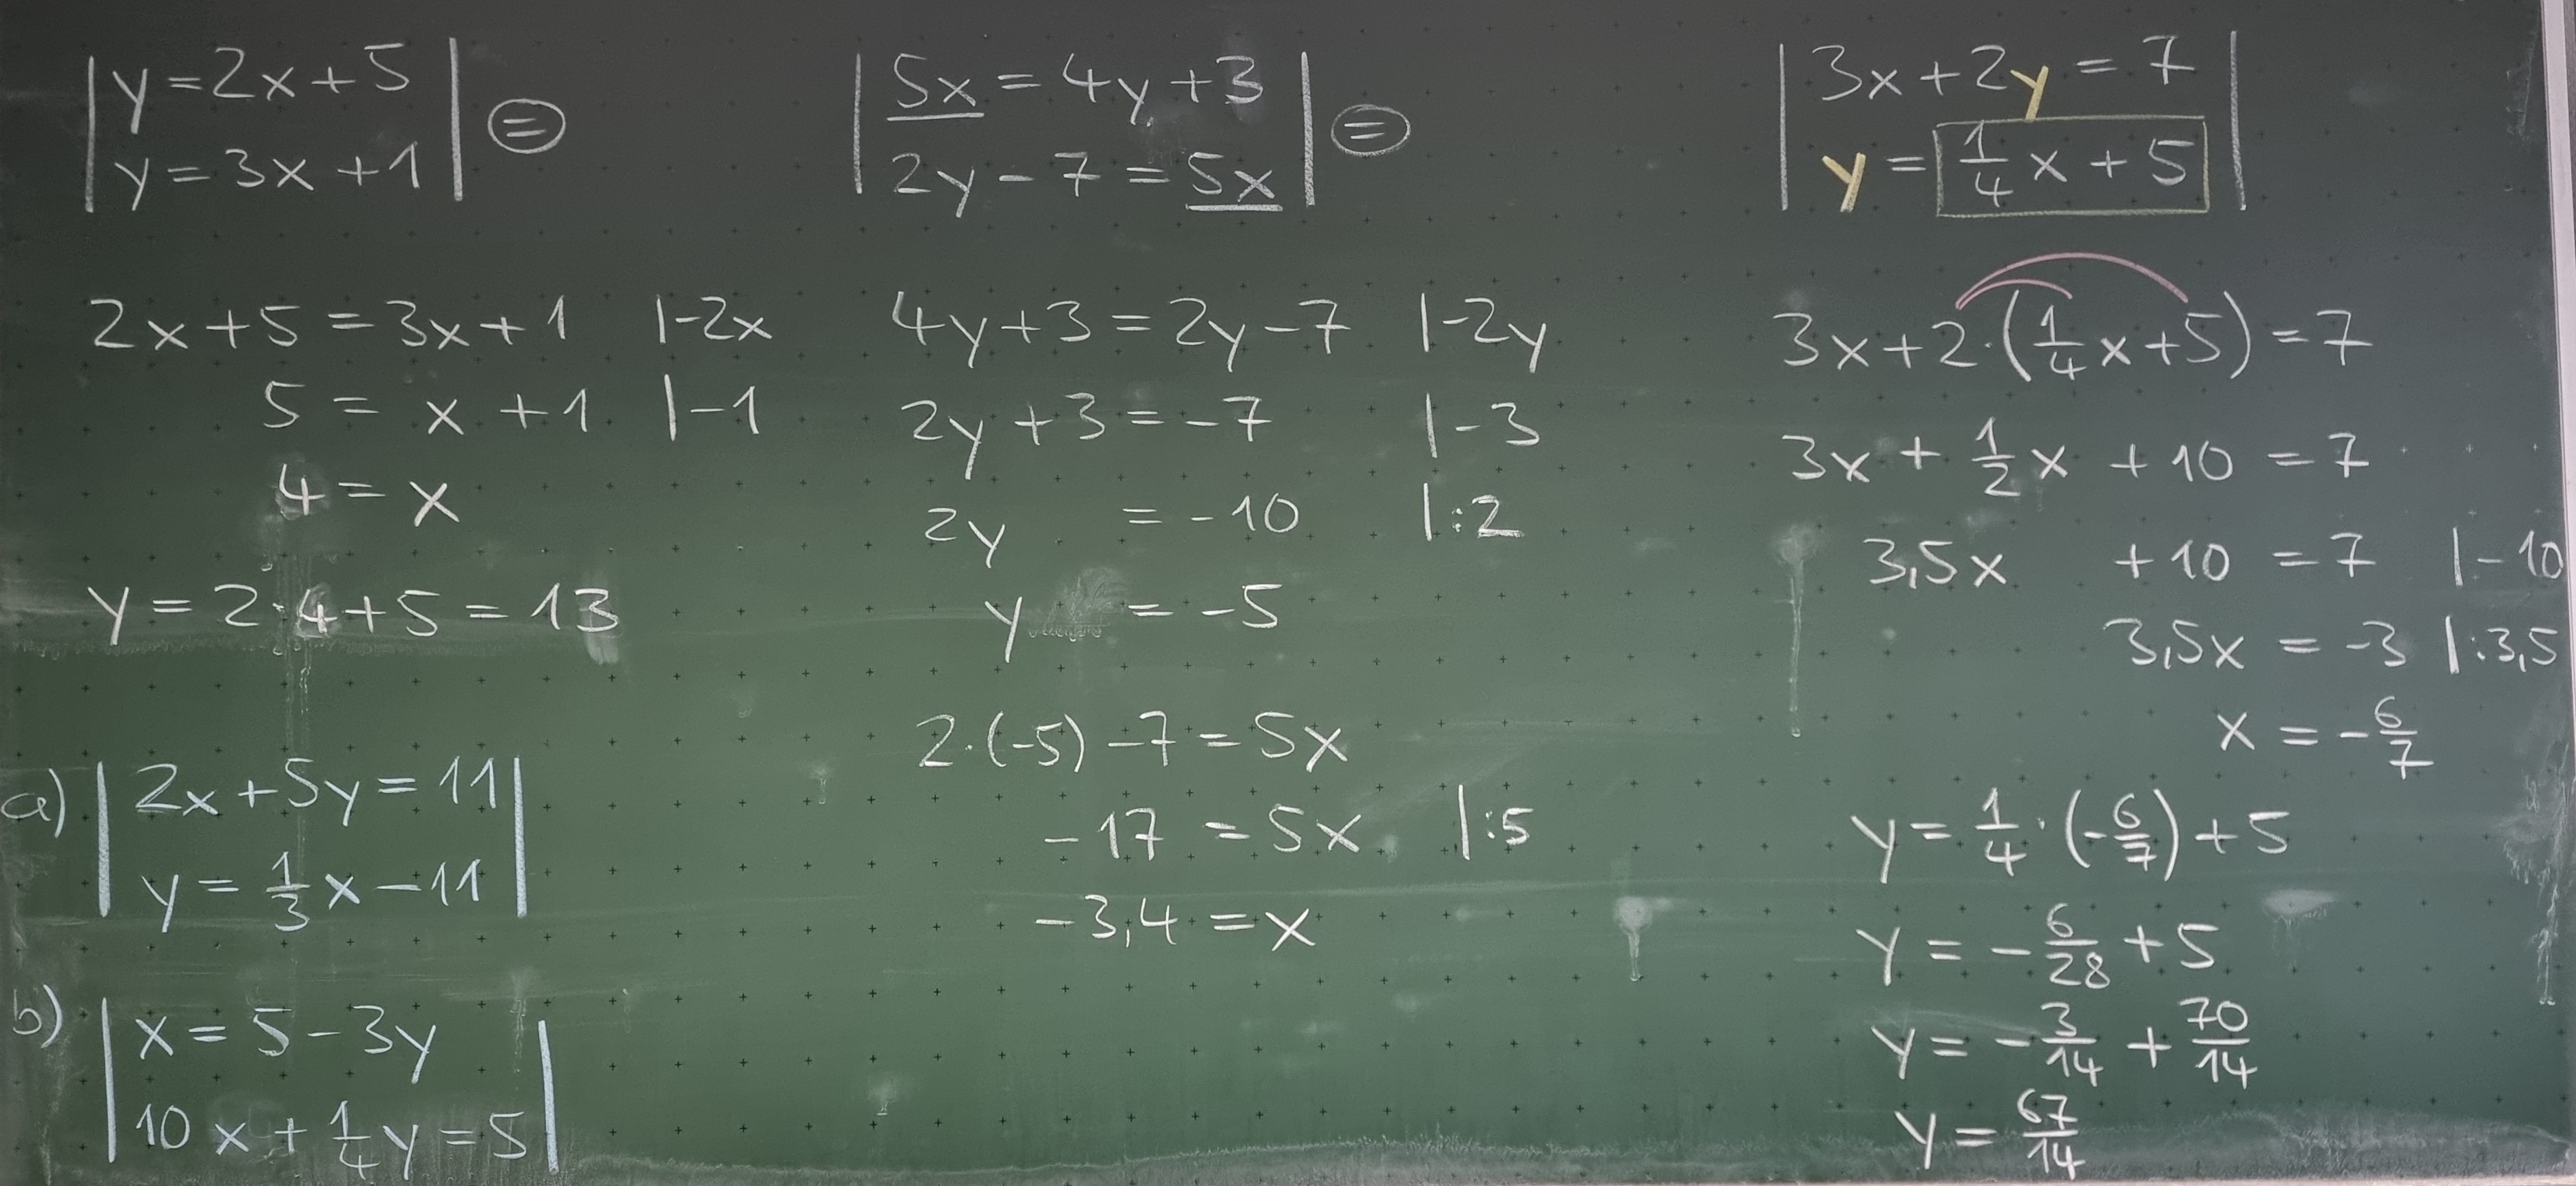 |y=2x+5
y=3x+1| =
2x+5=3x+1 |-2x
5 = x +1 |-1
4 = x
y = 2·4+5 = 13
a) |2x+5y=11
y = 1/3 x -11|
b) |x = 5-3y
10x + 1/4 y = 5|
|5x = 4y+3
2y-7 = 5x| =
4y+3=2y-7 |-2y
2y+3=-7 |-3
2y = -10 |:2
y = -5
2·(-5)-7=5x
-17 = 5x |:5
-3,4 = x
|3x+2y=7
y = 1/4 x + 5|
3x+2·(1/4 x+5)=7
3x + 1/2 x + 10 = 7
3,5x + 10 = 7 |-10
3,5x = -3 |:3,5
x = -6/7
y = 1/4 · (-6/7) + 5
y = -6/28 + 5
y = -3/14 + 70/14
y = 67/14